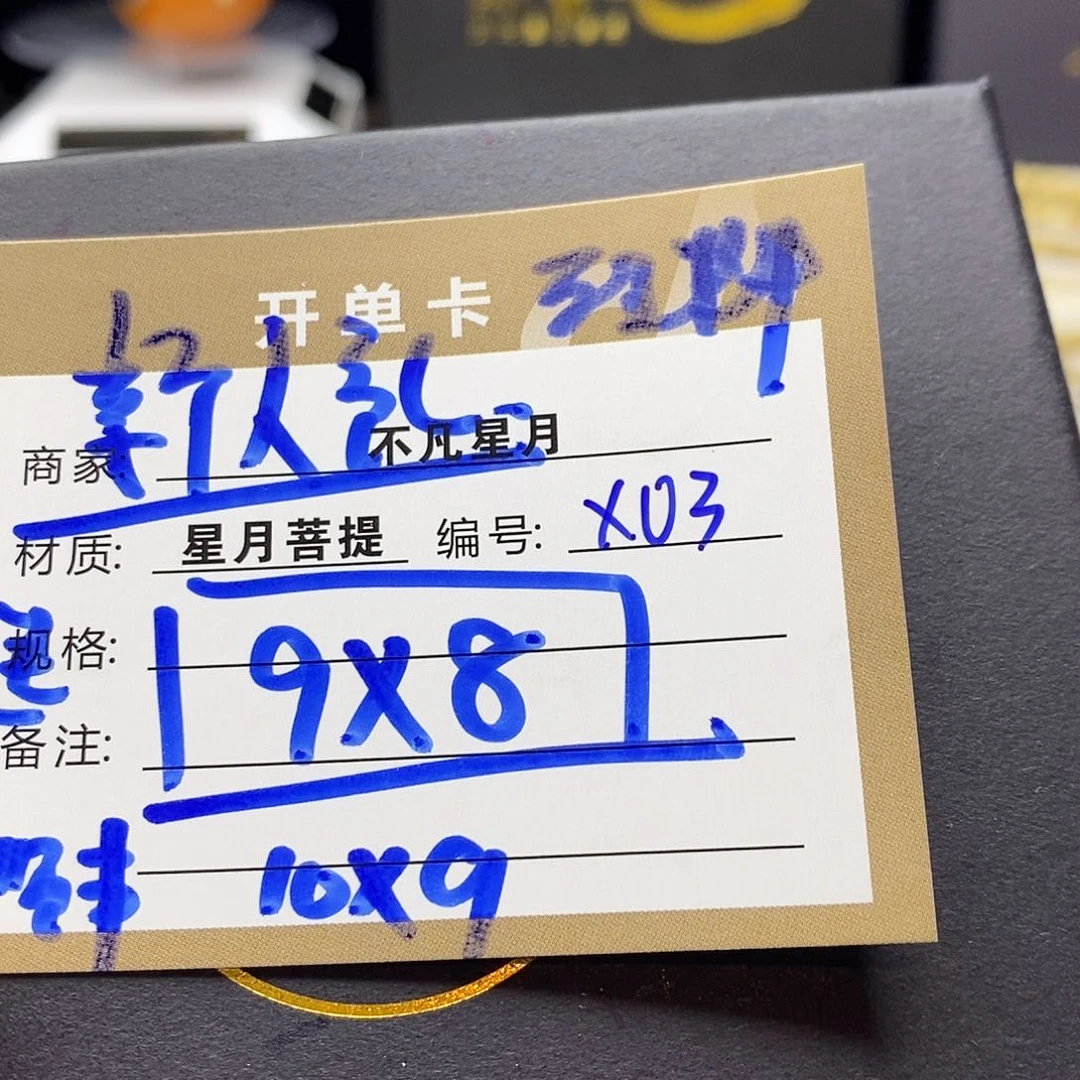 开单卡
新人礼
商家: 不凡星月
材质: 星月菩提 编号: X03
规格: 9X8
备注:
10X9